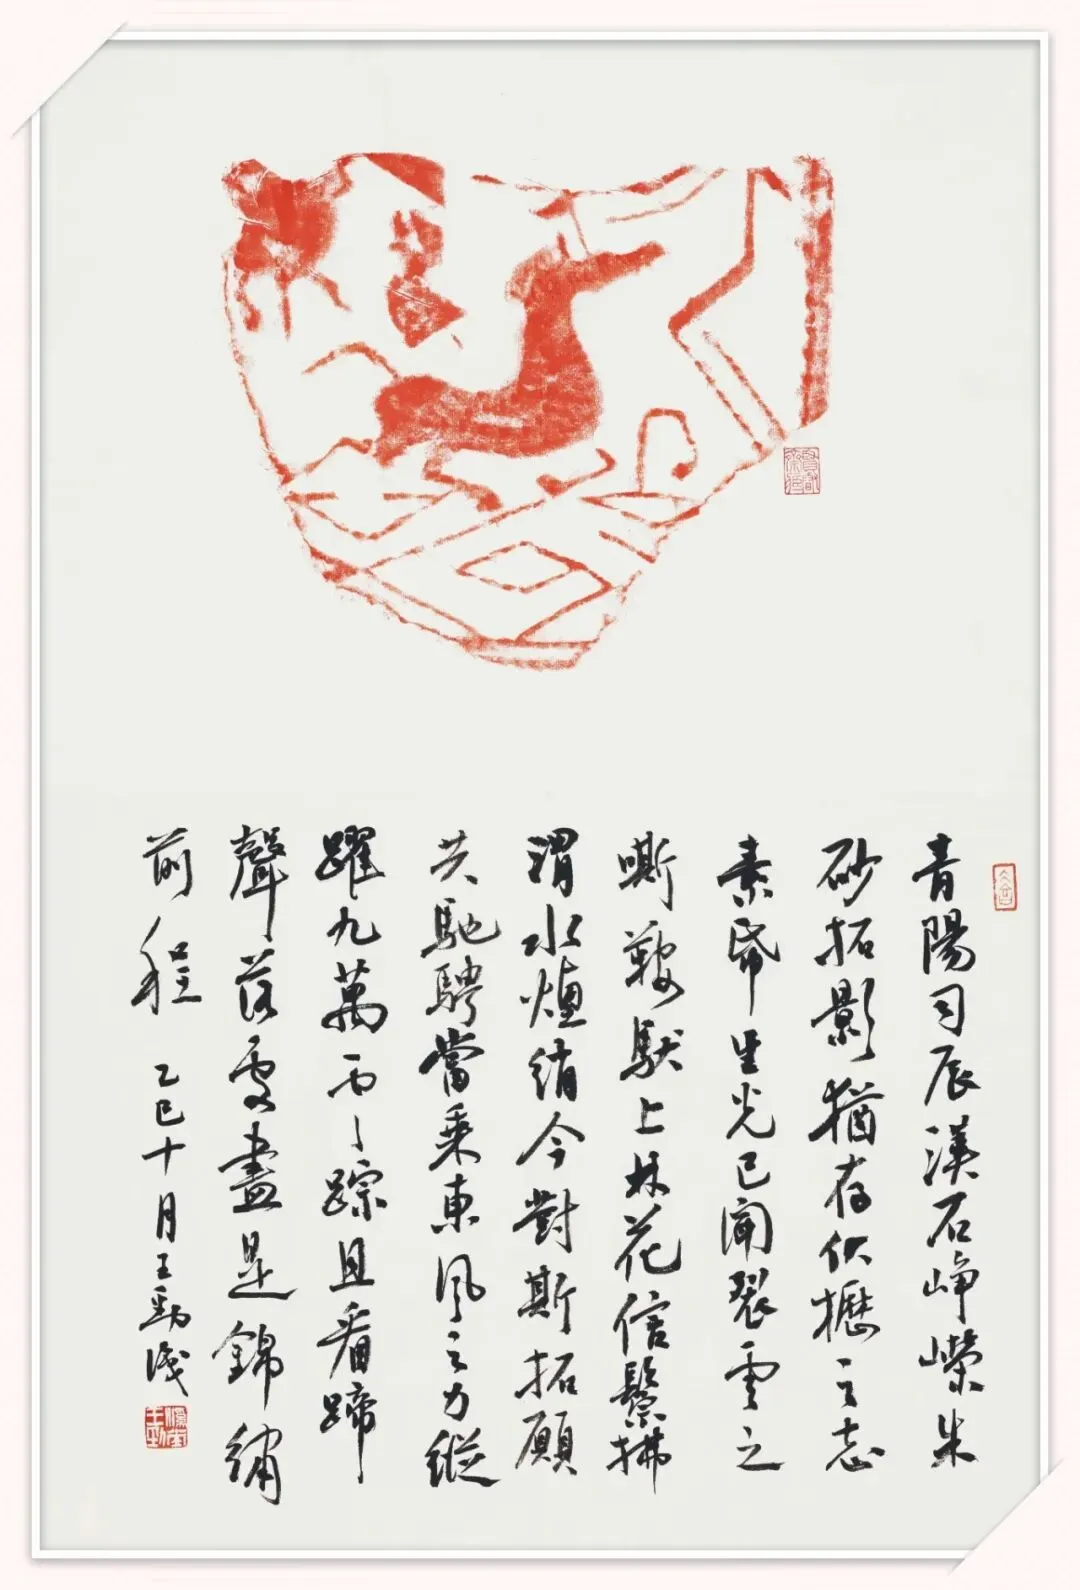 青陽司辰漢石崢嶸朱
砂拓影猶存伏櫪之志
素帋生光已聞裂雲之
嘶鞍馱上林花信鬃拂
渭水煙綃今對斯拓願
共馳騁當乘東風之力縱
躍九萬踪且看蹄
聲落處盡是錦繡
前程 乙巳十月王勁識